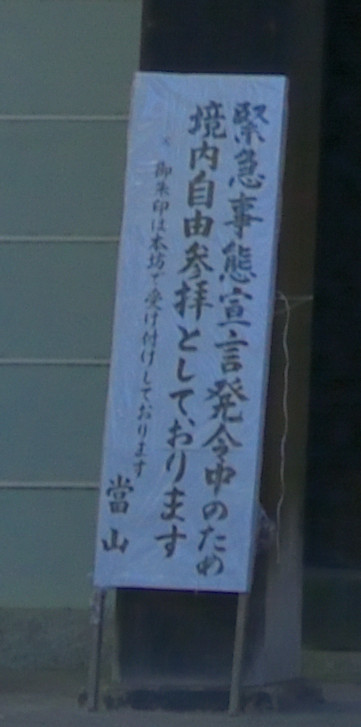 緊急事態宣言発令中のため
境内自由参拝として、おります
※御朱印は本坊で受け付けしております
當山